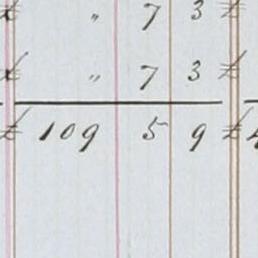 " 7 3
" 7 3
£ 109 5 9 £